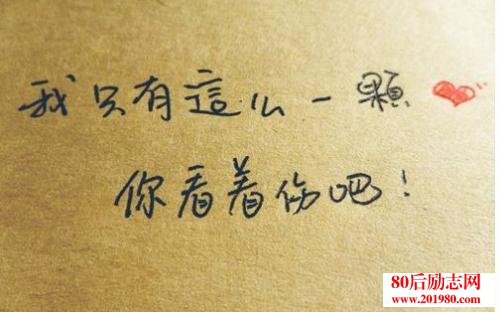 我只有這么一顆❤
你看着伤吧!
80后励志网
www.201980.com